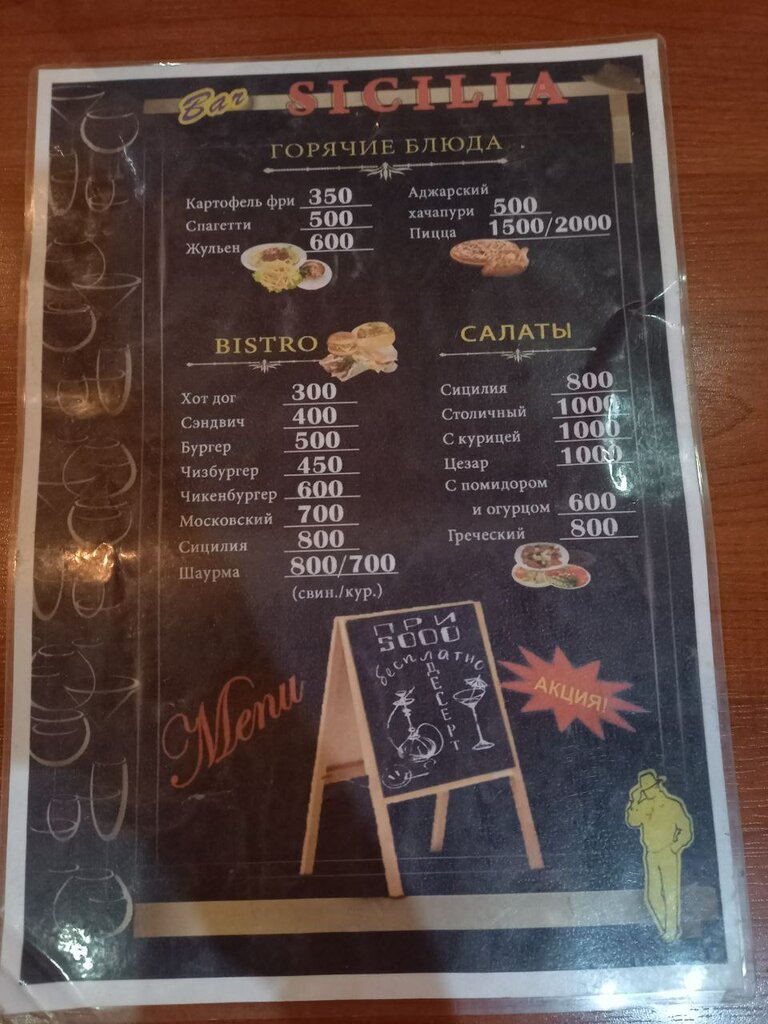 Bar SICILIA
ГОРЯЧИЕ БЛЮДА
Картофель фри 350
Спагетти 500
Жульен 600
Аджарский
хачапури 500
Пицца 1500/2000
BISTRO
Хот дог 300
Сэндвич 400
Бургер 500
Чизбургер 450
Чикенбургер 600
Московский 700
Сицилия 800
Шаурма 800/700
(свин./кур.)
САЛАТЫ
Сицилия 800
Столичный 1000
С курицей 1000
Цезар 1000
С помидором
и огурцом 600
Греческий 800
Menu
ПРИ
5000
бесплатно
ДЕСЕРТ
АКЦИЯ!